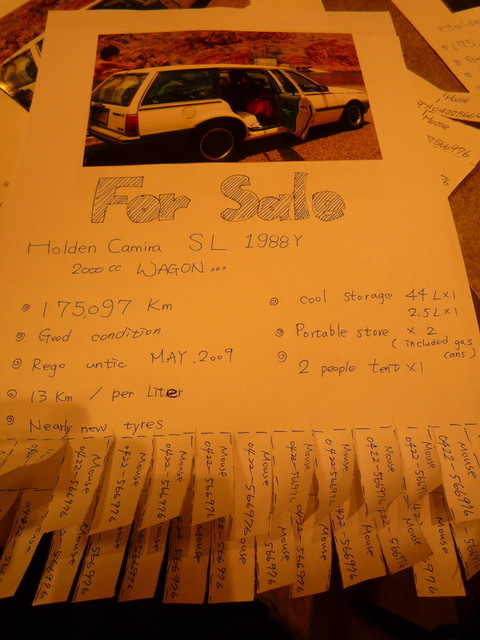 For Sale
Holden Camira SL 1988Y
2000cc WAGON...
175,097 Km
Good condition
Rego until MAY.2009
13 Km / per Liter
Nearly new tyres
cool storage 44L×1
2.5L×1
Portable store × 2
(included gas cans)
2 people tent ×1
Mouse
0422-566976
Mouse
0422-566976
Mouse
0422-566976
Mouse
0422-566976
Mouse
0422-566976
Mouse
0422-566976
Mouse
0422-566976
Mouse
0422-566976
Mouse
0422-566976
Mouse
0422-566976